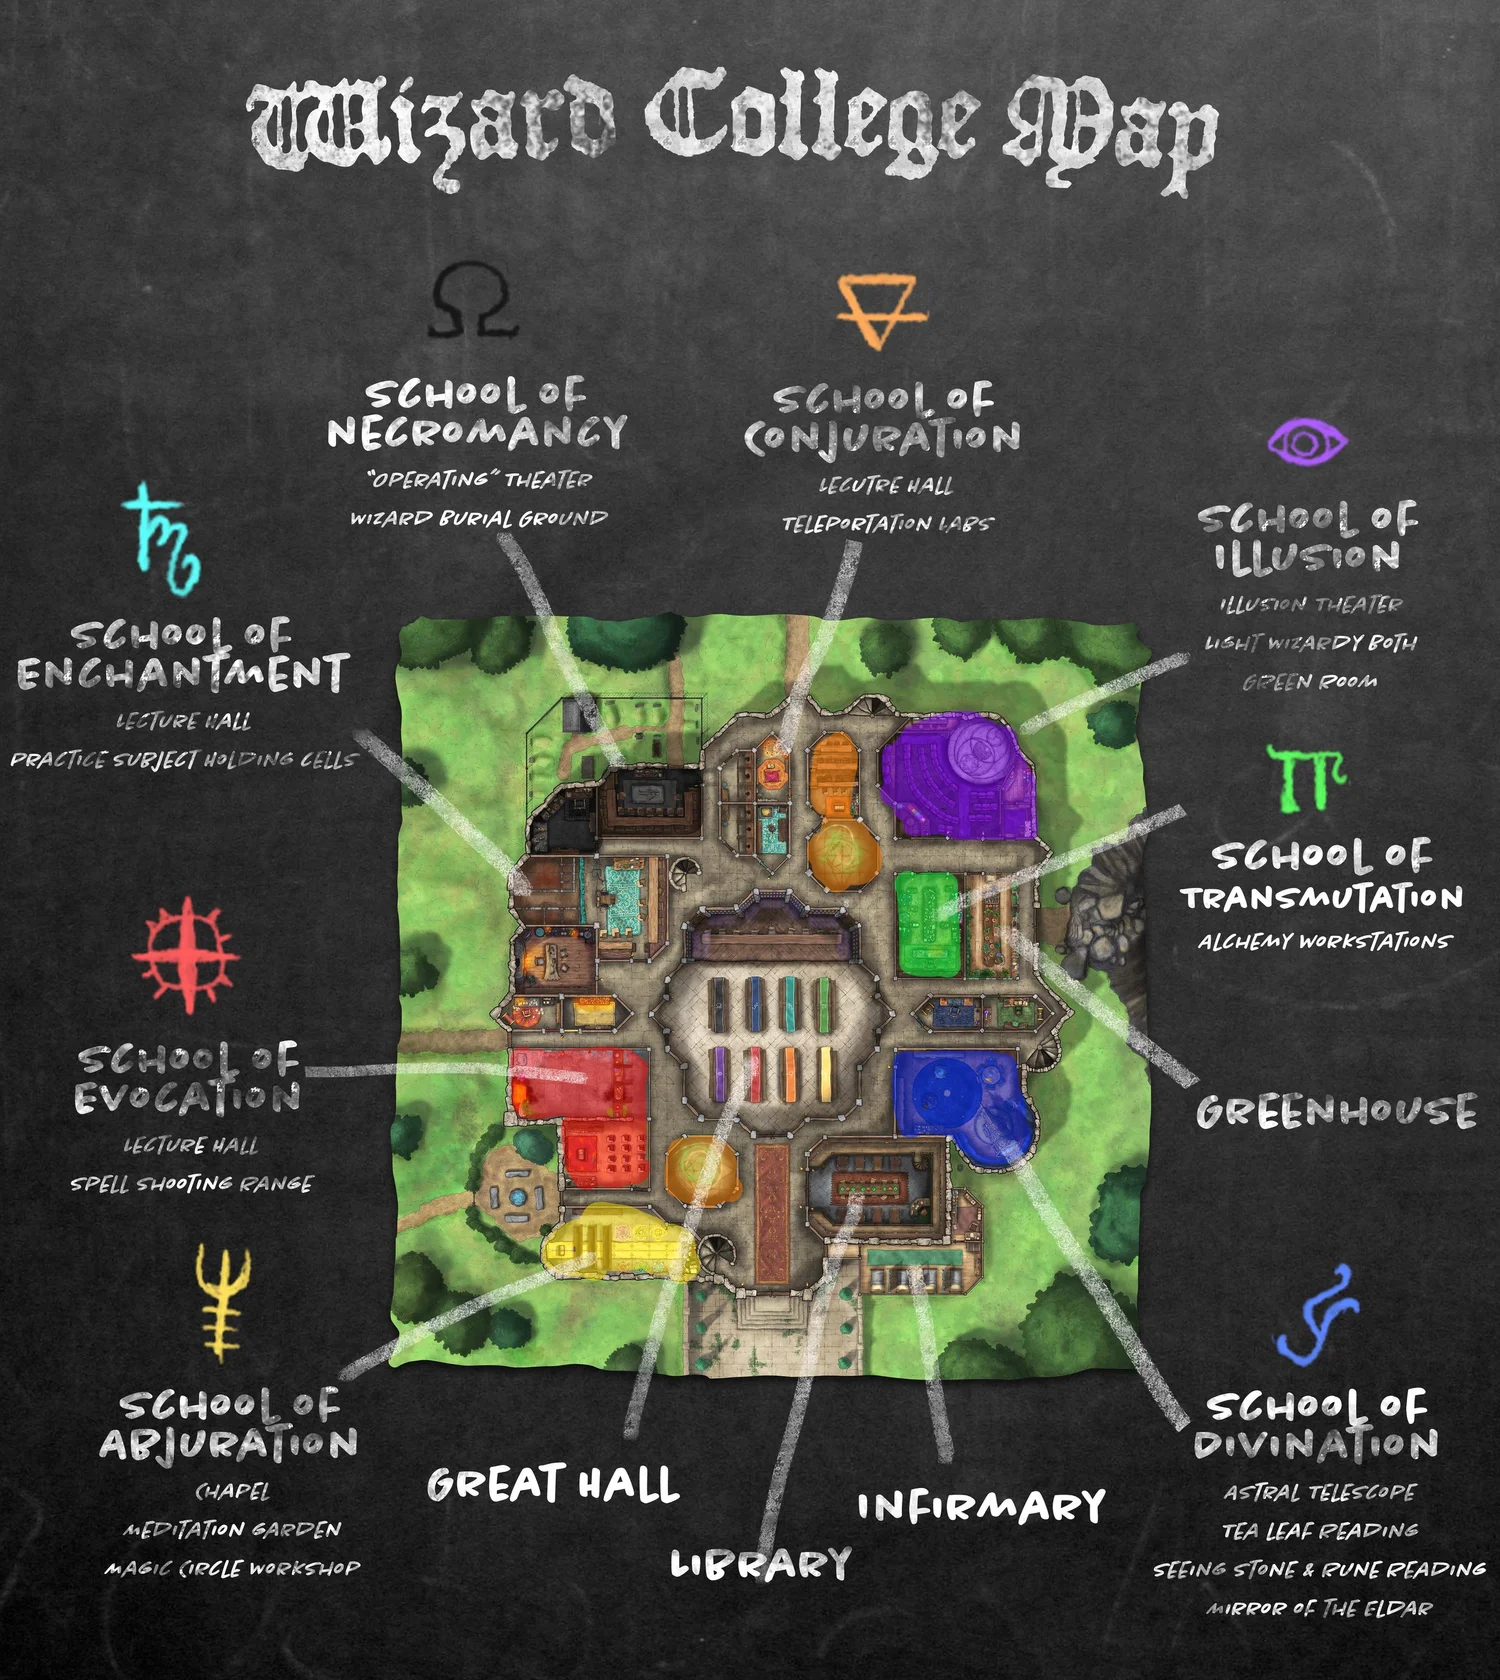 Wizard College Map
SCHOOL OF
NECROMANCY
"OPERATING" THEATER
WIZARD BURIAL GROUND
SCHOOL OF
CONJURATION
LECUTRE HALL
TELEPORTATION LABS
SCHOOL OF
ILLUSION
ILLUSION THEATER
LIGHT WIZARDY BOTH
GREEN ROOM
SCHOOL OF
ENCHANTMENT
LECTURE HALL
PRACTICE SUBJECT HOLDING CELLS
SCHOOL OF
TRANSMUTATION
ALCHEMY WORKSTATIONS
SCHOOL OF
EVOCATION
LECTURE HALL
SPELL SHOOTING RANGE
GREENHOUSE
SCHOOL OF
ABJURATION
CHAPEL
MEDITATION GARDEN
MAGIC CIRCLE WORKSHOP
GREAT HALL
LIBRARY
INFIRMARY
SCHOOL OF
DIVINATION
ASTRAL TELESCOPE
TEA LEAF READING
SEEING STONE & RUNE READING
MIRROR OF THE ELDAR